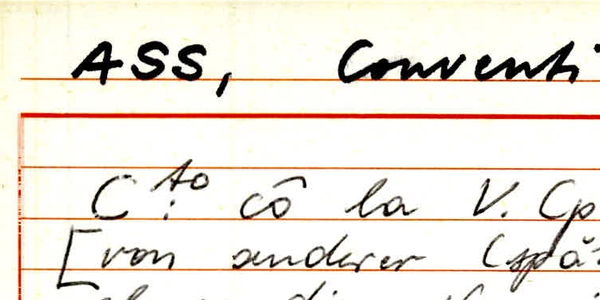 ASS, Conventi
C:to cô la V. Cp
[von anderer (spä